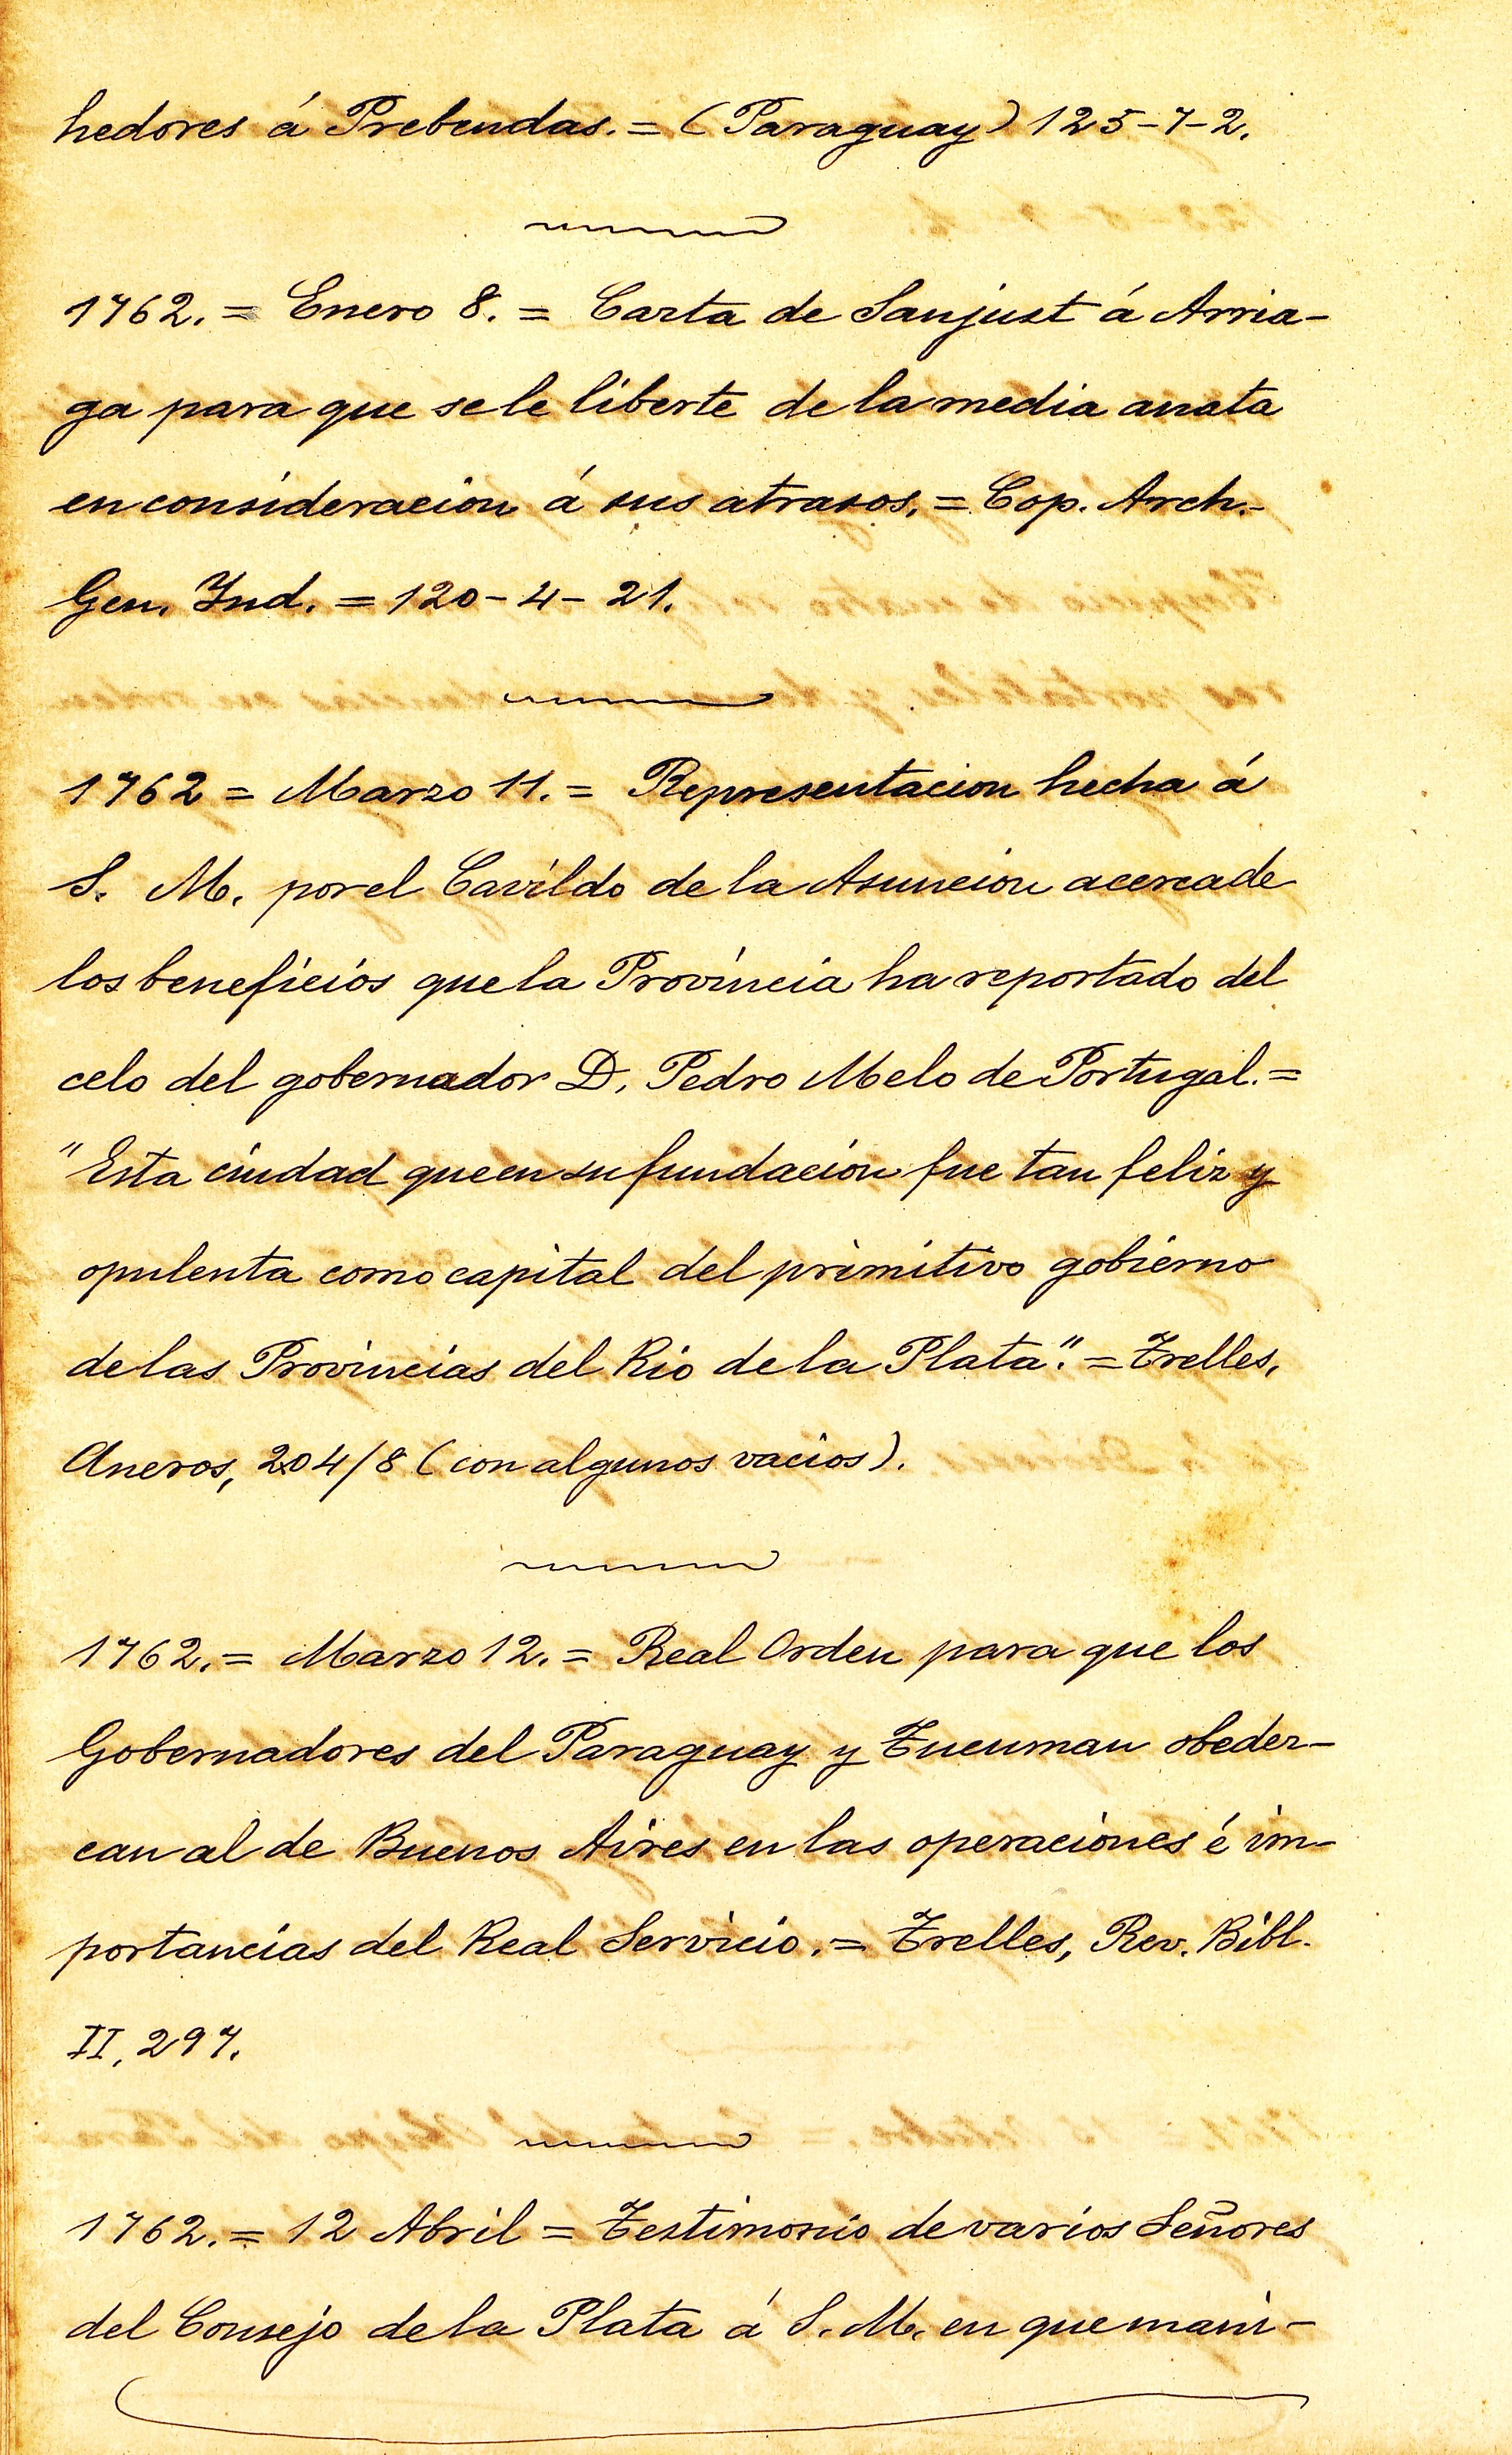 hedores á Prebendas. = (Paraguay) 125-7-2.
1762. = Enero 8. = Carta de Sanjust á Arria-
ga para que se le liberte de la media anata
en consideracion á sus atrasos. = Cop. Arch.-
Gen. Ind. = 120-4-21.
1762 = Marzo 11. = Representacion hecha á
S. M. por el Cavildo de la Asuncion acerca de
los beneficios que la Provincia ha reportado del
celo del gobernador D. Pedro Melo de Portugal. =
"Esta ciudad que en su fundacion fue tan feliz y
opulenta como capital del primitivo gobierno
de las Provincias del Rio de la Plata". = Trelles,
Aneros, 204/8 (con algunos vacios).
1762. = Marzo 12. = Real Orden para que los
Gobernadores del Paraguay y Tucuman obedez-
can al de Buenos Aires en las operaciones é im-
portancias del Real Servicio. = Trelles, Rev. Bibl.
II, 297.
1762. = 12 Abril = Testimonio de varios Señores
del Consejo de la Plata á S. M. en que mani-